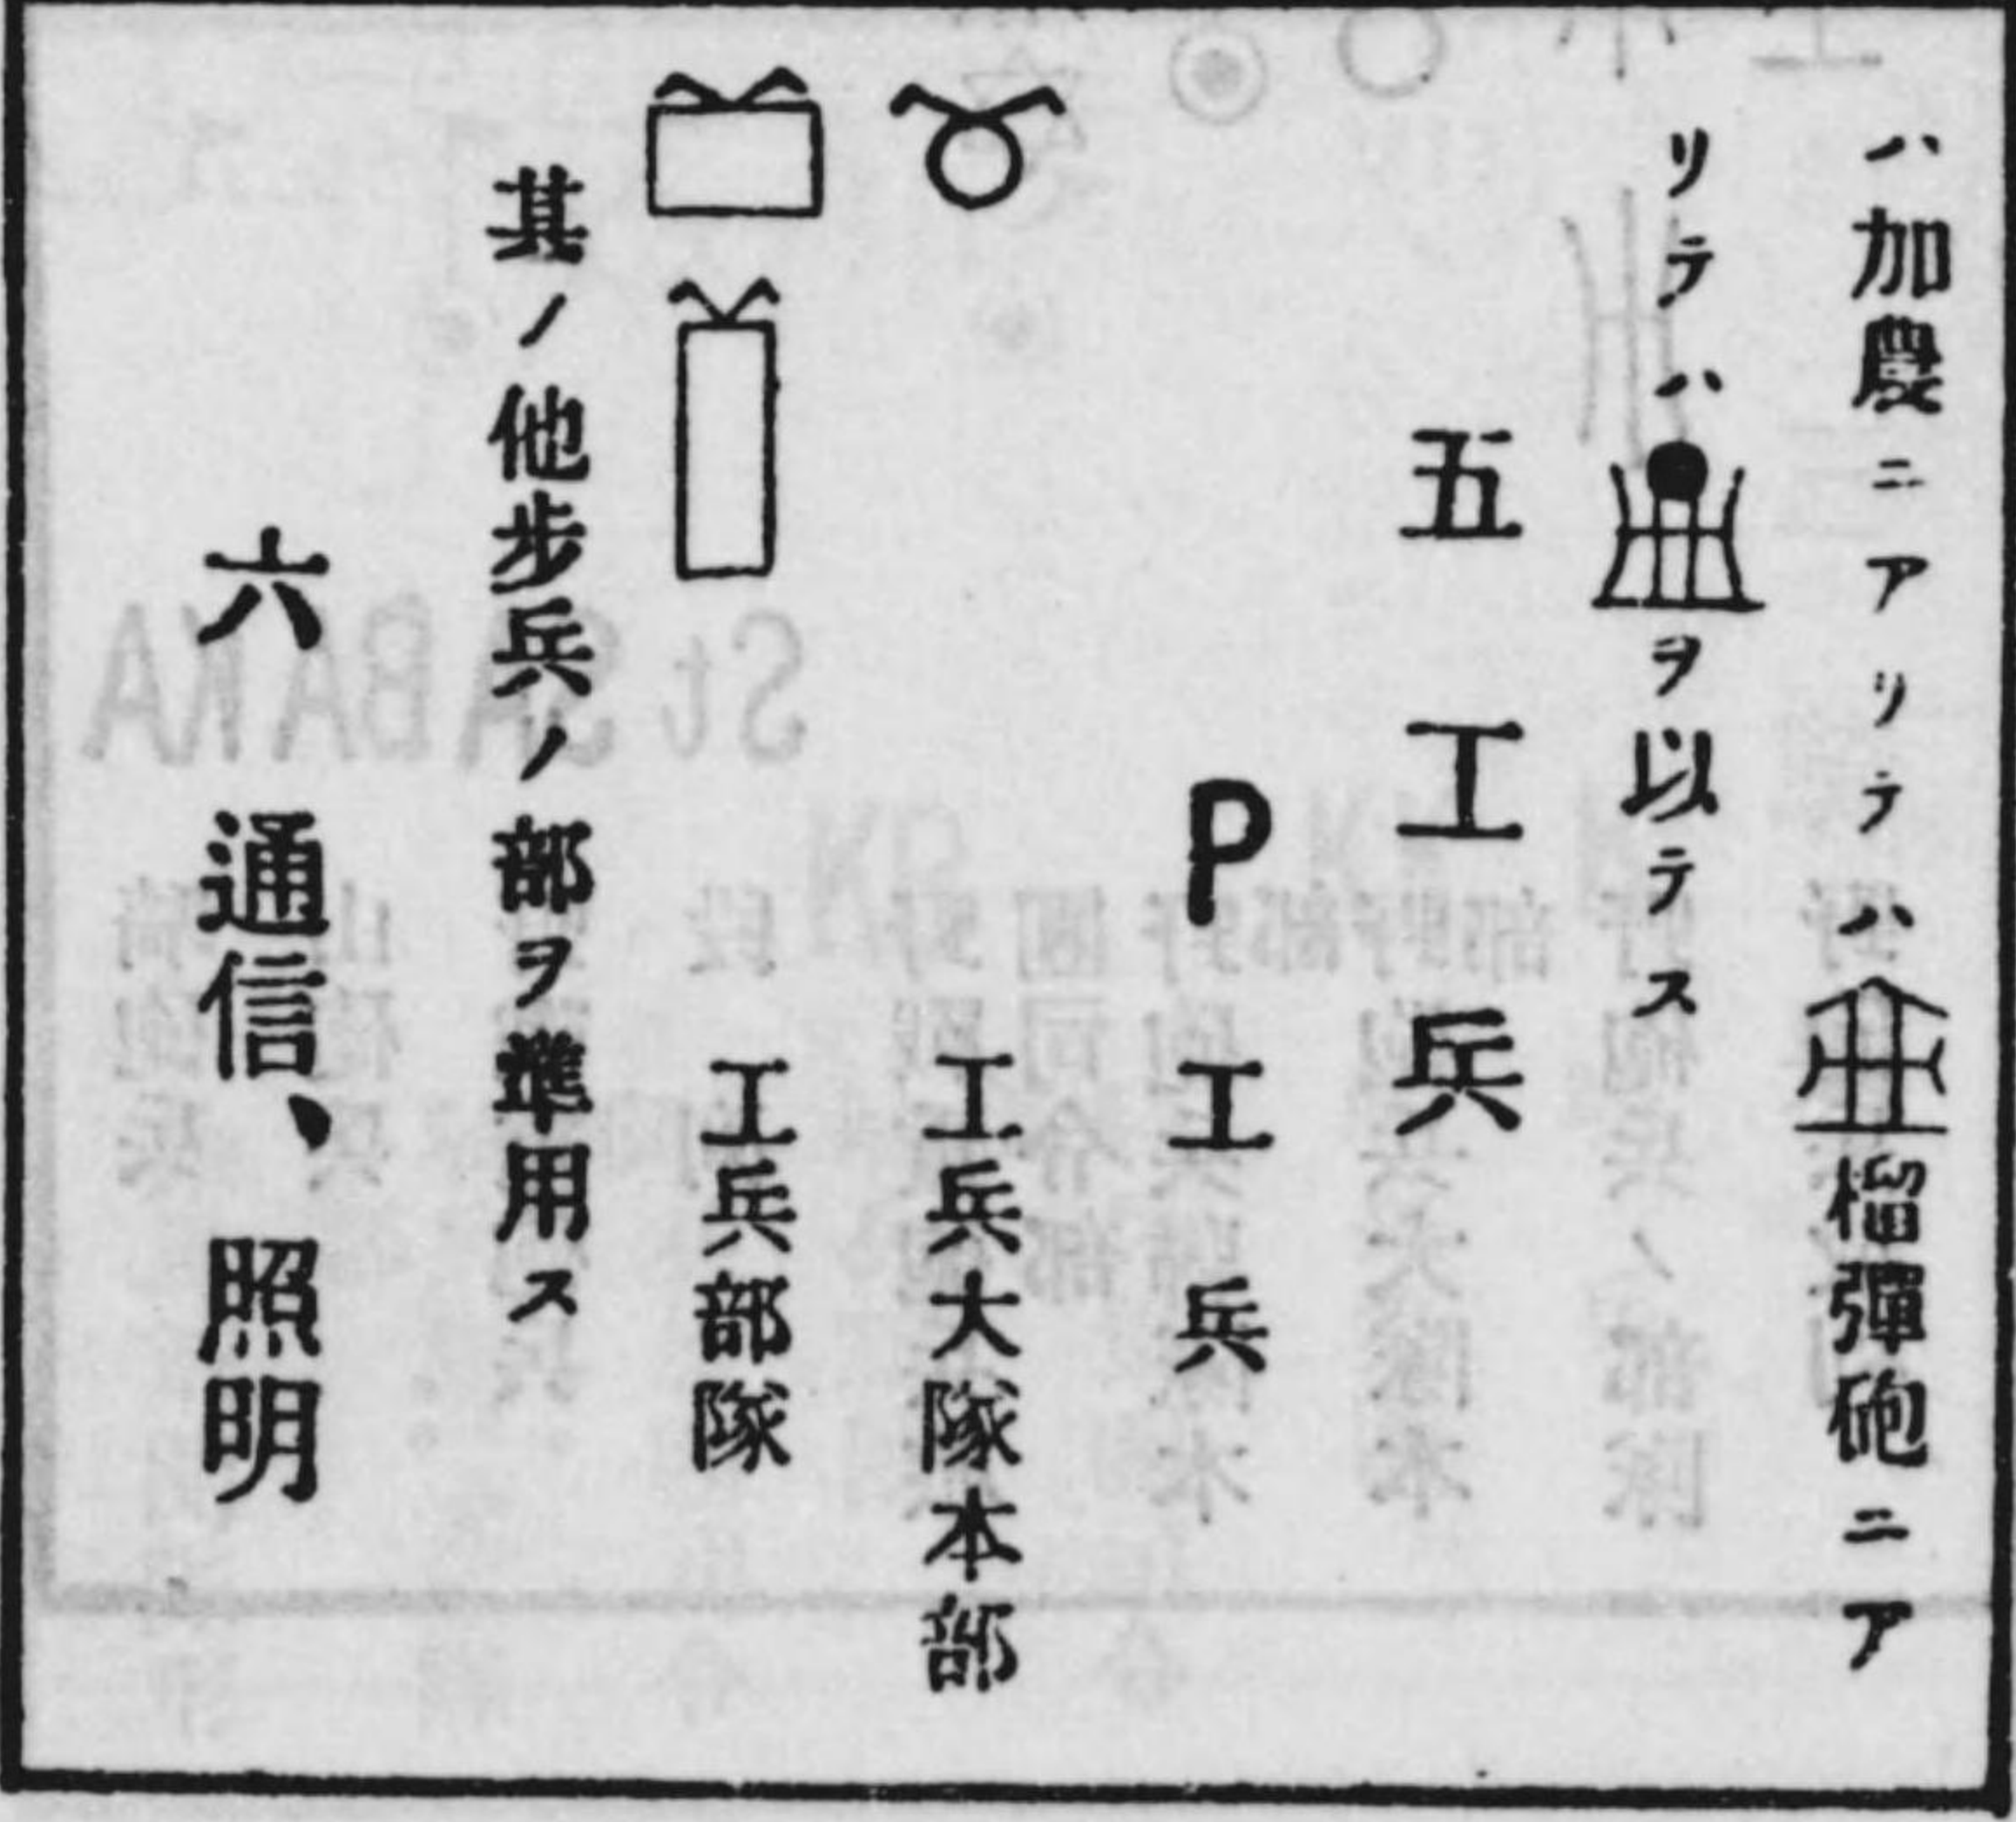 ハ加農ニアリテハ榴彈砲ニア
リテハヲ以テス
五 工 兵
P 工 兵
工兵大隊本部
工兵部隊
其ノ他步兵ノ部ヲ準用ス
六 通信、照明